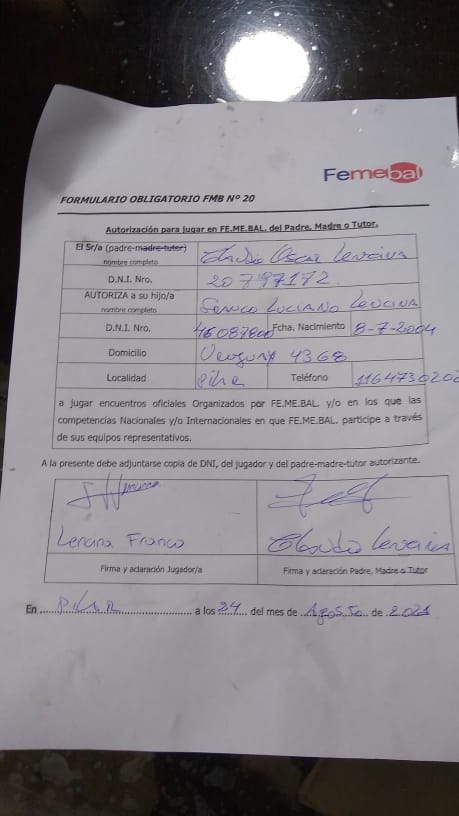 Femebal
FORMULARIO OBLIGATORIO FMB Nº 20
Autorización para jugar en FE.ME.BAL. del Padre, Madre o Tutor.
El Sr/a (padre-madre-tutor) Claudio Oscar Lencina
nombre completo
D.N.I. Nro. 20797172.
AUTORIZA a su hijo/a Franco Luciano Lencina
nombre completo
D.N.I. Nro. 46087800 Fcha. Nacimiento 8-7-2004
Domicilio Uruguay 4368
Localidad Pilar Teléfono 1164730202
a jugar encuentros oficiales Organizados por FE.ME.BAL. y/o en los que las
competencias Nacionales y/o Internacionales en que FE.ME.BAL. participe a través
de sus equipos representativos.
A la presente debe adjuntarse copia de DNI, del jugador y del padre-madre-tutor autorizante.
Lencina Franco Claudio Lencina
Firma y aclaración Jugador/a Firma y aclaración Padre, Madre o Tutor
En PILAR a los 24 del mes de Agosto de 2021